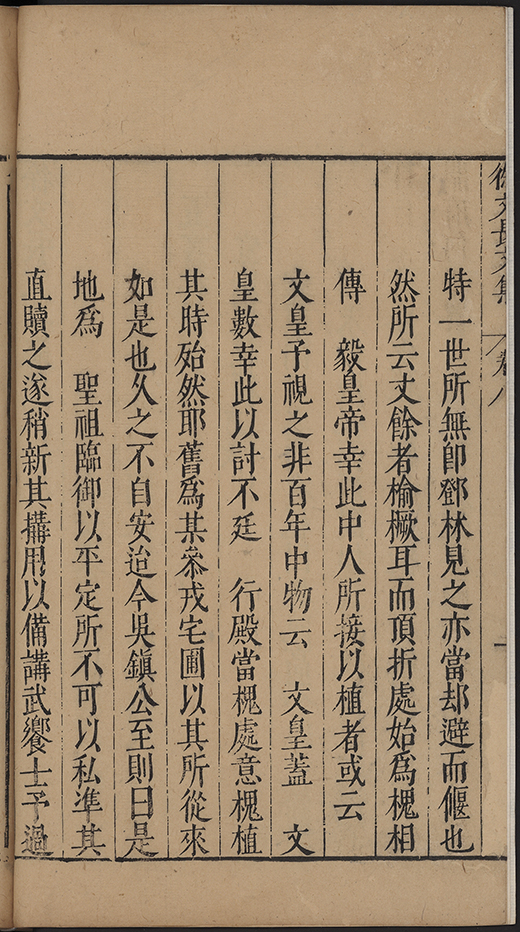 徐文長文集 卷八
特一世所無即鄧林見之亦當却避而偃也
然所云丈餘者榆橛耳而頂折處始為槐相
傳 毅皇帝幸此中人所接以植者或云
文皇予視之非百年中物云 文皇蓋 文
皇數幸此以討不廷 行殿當槐處意槐植
其時殆然耶舊為某叅戎宅圃以其所從來
如是也久之不自安迨今吳鎮公至則曰是
地為 聖祖臨御以平定所不可以私準其
直贖之遂稍新其搆用以備講武饗士予過